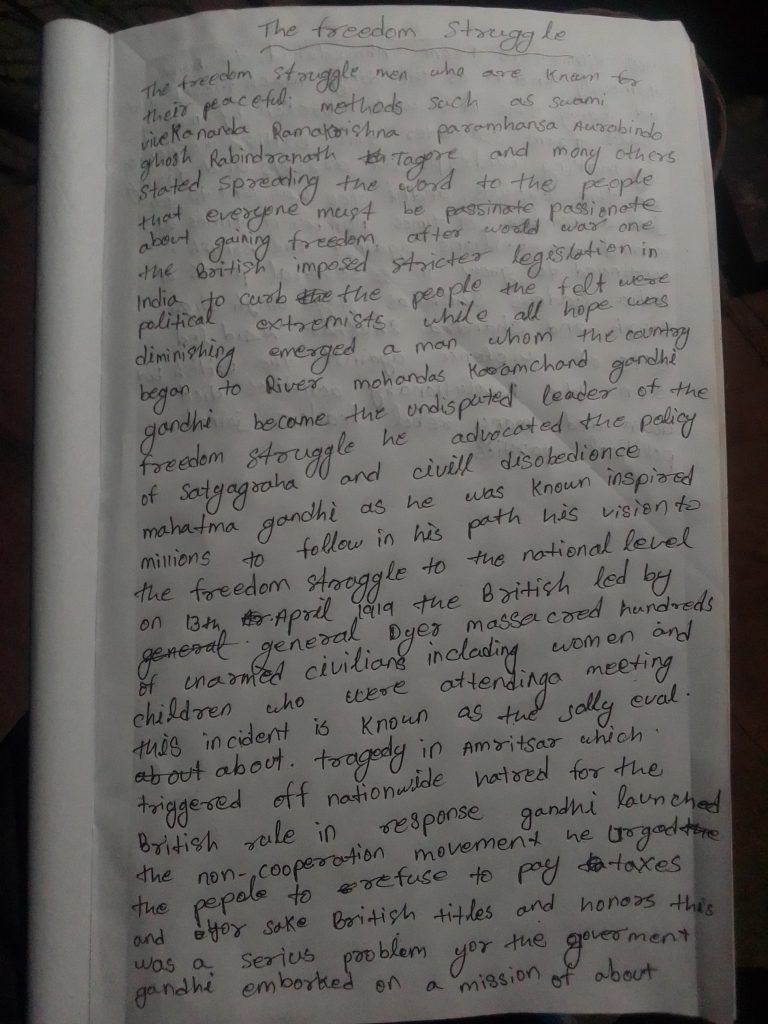 The freedom Struggle
The freedom struggle men who are known for
their peaceful: methods such as swami
viveKananda Ramakrishna paramhansa Aurobindo
ghosh Rabindranath Tagore and mony others
stated spreading the word to the people
that everyone must be passinate passionate
about gaining freedom after world war one
the British imposed stricter legislation in
India to curb the the people the felt were
political extremists while all hope was
diminishing emerged a man whom the country
began to River mohandas Karamchand gandhi
gandhi became the undisputed leader of the
freedom struggle he advocated the policy
of satyagraha and civill disobedience
mahatma gandhi as he was known inspired
millions to follow in his path his vision to
the freedom straggle to the national level
on 13th April 1919 the British led by
general general Dyer massacred hundreds
of unarmed civilians including women and
children who were attendinga meeting
this incident is Known as the jally eval.
about about. tragedy in Amritsar which
triggered off nationwide hatred for the
British rule in response gandhi launched
the non-cooperation movement he urged the
the pepole to refuse to pay taxes
and yor sake British titles and honors this
was a serius problem yor the goverment
gandhi emborked on a mission of about